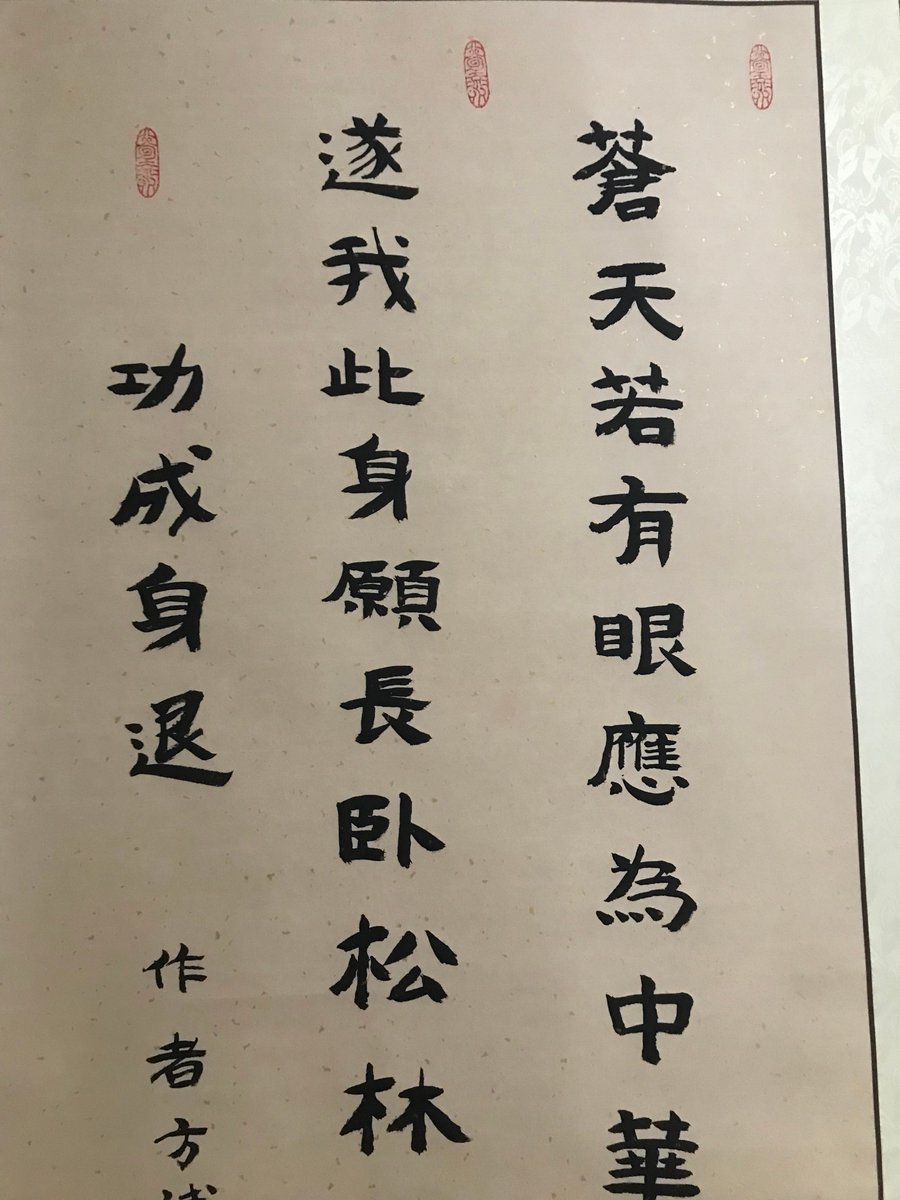 蒼天若有眼應為中華
遂我此身願長卧松林
功成身退
作者方